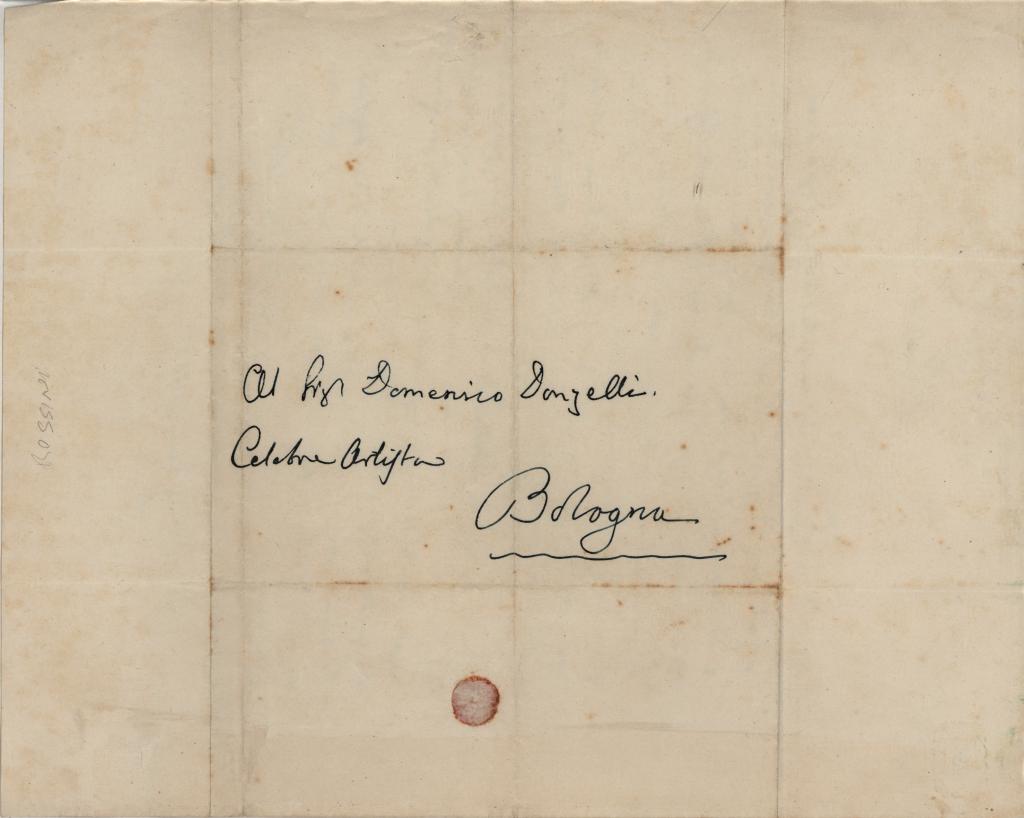 Al Sigr Domenico Donzelli.
Celebre Artista
Bologna
ROSSINI